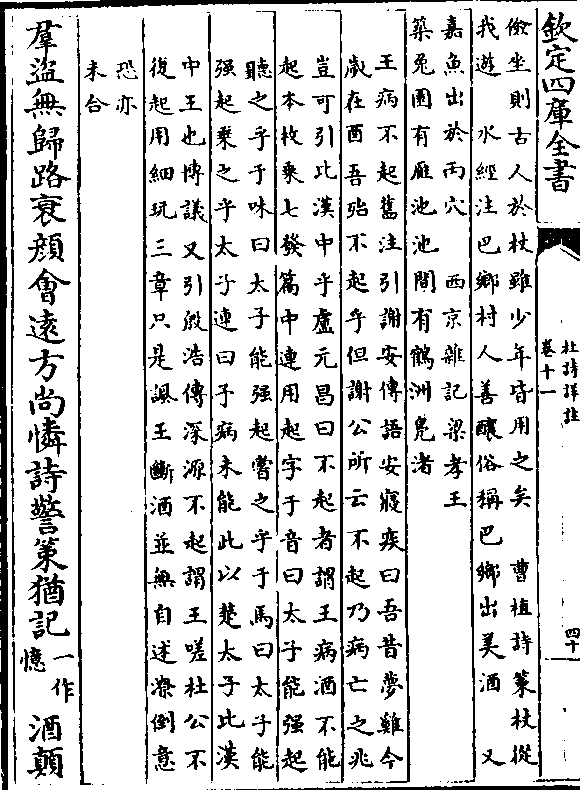 欽定四庫全書
杜詩詳註
卷十一
四十
儉坐則古人於杖雖少年皆用之矣　曹植詩策杖從
我遊　水經注巴鄉村人善釀俗稱巴鄉出美酒　又
嘉魚出於丙穴　西京雜記梁孝王
築兔園有雁池池間有鶴洲鳧渚
王病不起舊注引謝安傳語安寢疾曰吾昔夢雞今
歲在酉吾殆不起乎但謝公所云不起乃病亡之兆
豈可引比漢中乎盧元昌曰不起者謂王病酒不能
起本枚乗七發篇中連用起字于音曰太子能强起
聽之乎于味曰太子能强起嘗之乎于馬曰太子能
强起乗之乎太子連曰予病未能此以楚太子比漢
中王也博議又引殷浩傳深源不起謂王嗟杜公不
復起用細玩三章只是諷王斷酒並無自述潦倒意
恐亦
未合
羣盗無歸路衰顔會遠方尚憐詩警䇿猶記一作憶酒顛